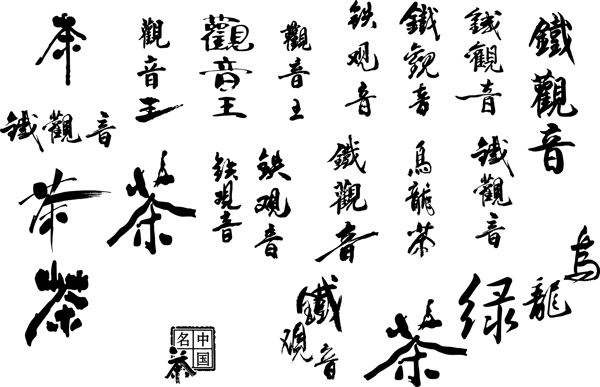 茶
觀音王
觀音王
觀音王
铁观音
鐵觀音
鐵觀音
鐵觀音
鐵觀音
茶
茶
铁观音
铁观音
鐵觀音
烏龍茶
鐵觀音
茶
中国名茶
鐵观音
茶
绿
烏龍